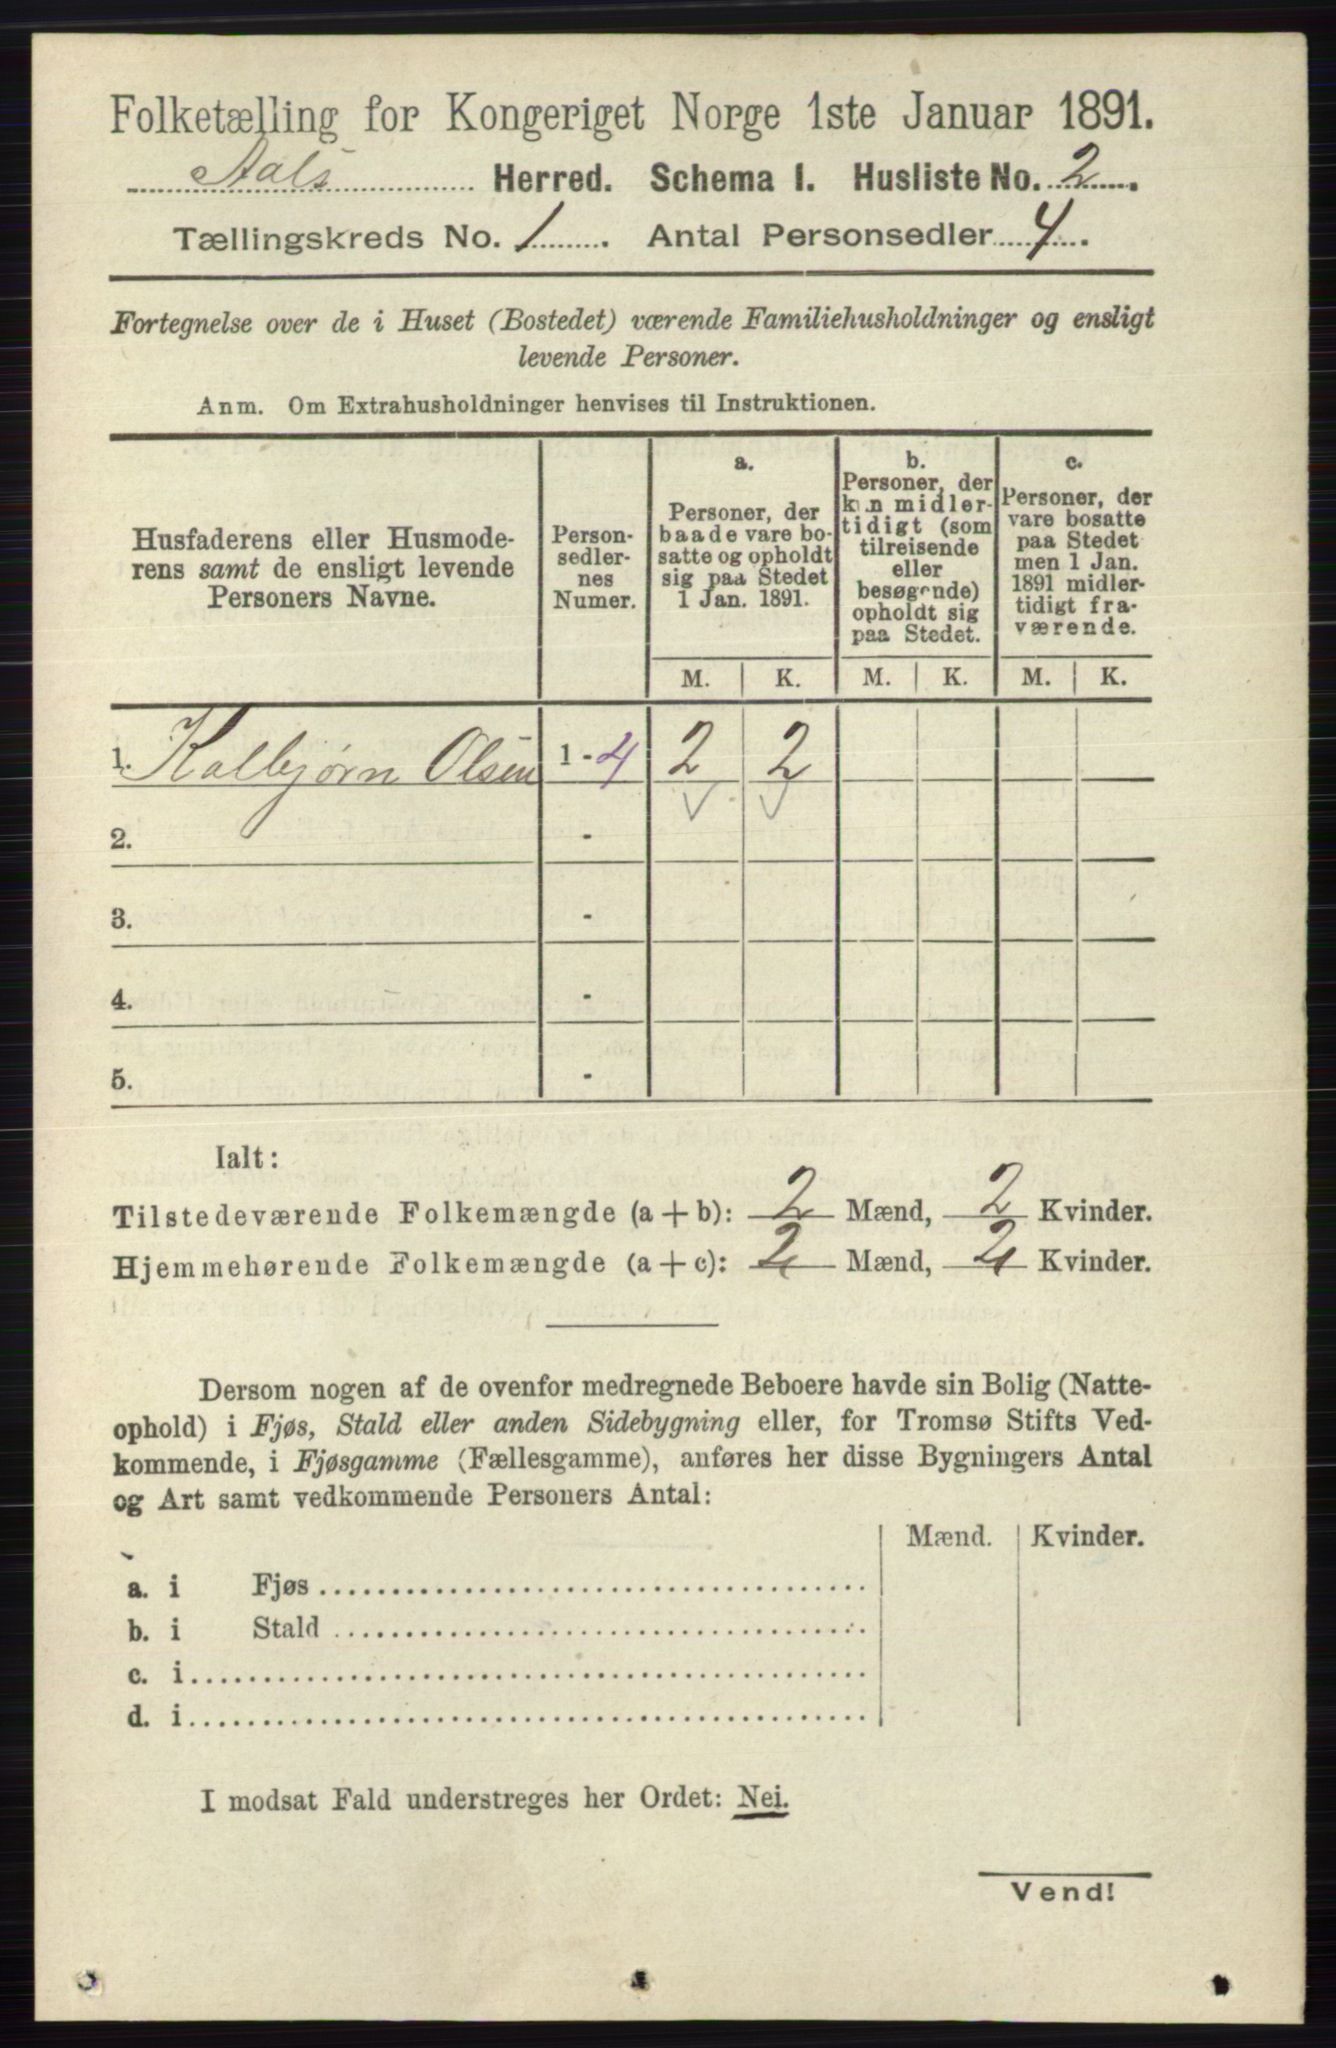 Folketælling for Kongeriget Norge 1ste Januar 1891.
Aals Herred. Schema I. Husliste No. 2.
Tællingskreds No. 1. Antal Personsedler 4.
Fortegnelse over de i Huset (Bostedet) værende Familiehusholdninger og ensligt
levende Personer.
Anm. Om Extrahusholdninger henvises til Instruktionen.
Husfaderens eller Husmode-
rens samt de ensligt levende
Personers Navne.
Person-
sedler-
nes
Numer.
a.
Personer, der
baade vare bo-
satte og opholdt
sig paa Stedet
1 Jan. 1891.
b.
Personer, der
kun midler-
tidigt (som
tilreisende
eller
besøgende)
opholdt sig
paa Stedet.
c.
Personer, der
vare bosatte
paa Stedet
men 1 Jan.
1891 midler-
tidigt fra-
værende.
M. K. M. K. M. K.
1. Kolbjørn Olsen 1 - 4 2 2
2. -
3. -
4. -
5. -
Ialt:
Tilstedeværende Folkemængde (a + b): 2 Mænd, 2 Kvinder.
Hjemmehørende Folkemængde (a + c): 2 Mænd, 2 Kvinder.
Dersom nogen af de ovenfor medregnede Beboere havde sin Bolig (Natte-
ophold) i Fjøs, Stald eller anden Sidebygning eller, for Tromsø Stifts Ved-
kommende, i Fjøsgamme (Fællesgamme), anføres her disse Bygningers Antal
og Art samt vedkommende Personers Antal:
Mænd. Kvinder.
a. i Fjøs
b. i Stald
c. i
d. i
I modsat Fald understreges her Ordet: Nei.
Vend!